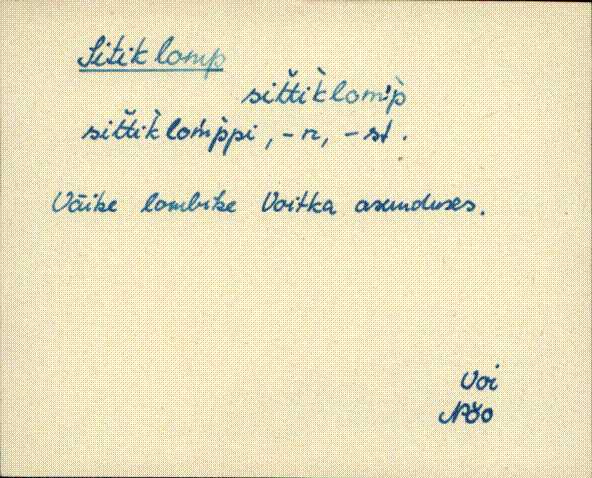 Sitik lomp
sit̆tik̀lom'p̀
sit̆tik̀lom̀p̀pi, -n, -st.
Väike lombike Voitka asunduses.
Voi